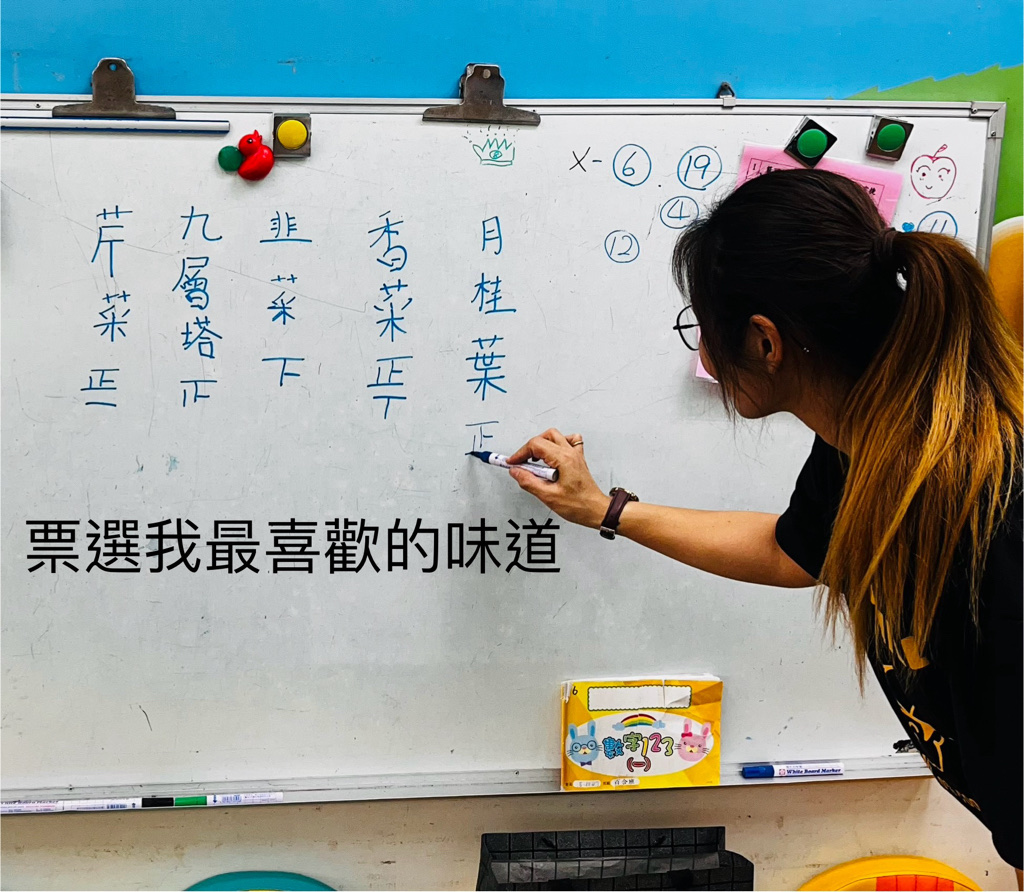 X- ⑥ ⑲
④
⑫ ⑪
月桂葉 正
香菜 正丅
韭菜 下
九層塔 正
芹菜 正二
票選我最喜歡的味道
6
數字123
(一)
White Board Marker